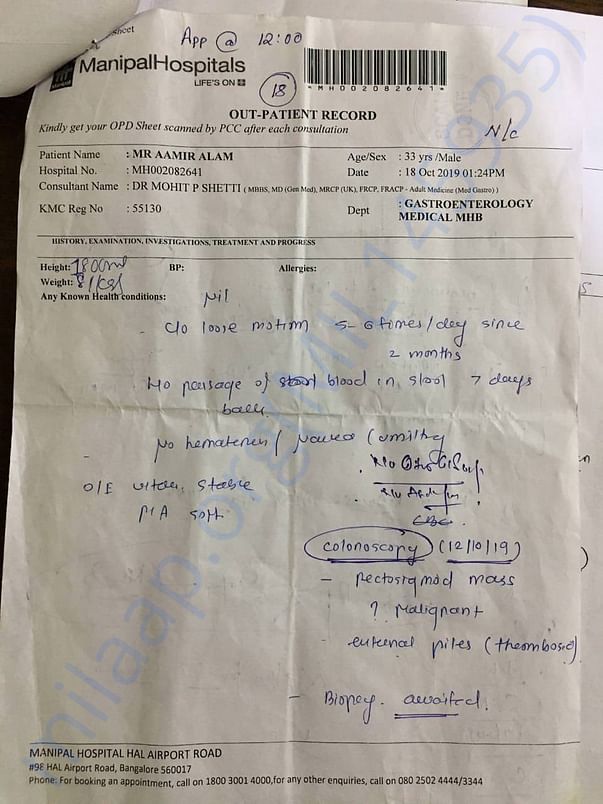 Sheet
App @ 12:00
ManipalHospitals
LIFE'S ON
*MH002082641*
18
OUT-PATIENT RECORD
Kindly get your OPD Sheet scanned by PCC after each consultation
N/c
Patient Name : MR AAMIR ALAM Age/Sex : 33 yrs /Male
Hospital No. : MH002082641 Date : 18 Oct 2019 01:24PM
Consultant Name : DR MOHIT P SHETTI ( MBBS, MD (Gen Med), MRCP (UK), FRCP, FRACP - Adult Medicine (Med Gastro) )
KMC Reg No : 55130 Dept : GASTROENTEROLOGY MEDICAL MHB
HISTORY, EXAMINATION, INVESTIGATIONS, TREATMENT AND PROGRESS
Height: 180cm BP: Allergies:
Weight: 81kgs
Any Known Health conditions: Nil
- C/o loose motion 5-6 times/day since
2 months
H/o passage of blood in stool 7 days
back.
- No nausea
O/E stable
P/A soft
CBC
colonoscopy (12/10/19)
- Rectosigmod mass
? Malignant
- external piles (thombosed)
- Biopsy. awaited.
MANIPAL HOSPITAL HAL AIRPORT ROAD
#98 HAL Airport Road, Bangalore 560017
Phone: For booking an appointment, call on 1800 3001 4000,for any other enquiries, call on 080 2502 4444/3344